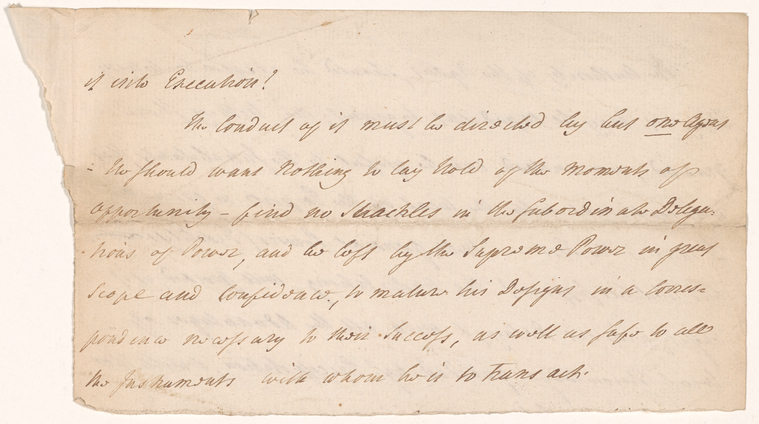 it into Execution!
The Conduct of it must be directed by but one Agent
- He should want Nothing to lay hold of the moments of
opportunity - find no Shackles in the Subordinate Delega-
tions of Power, and be left by the Supreme Power in great
Scope and Confidence, to mature his Designs in a Corres-
pondence necessary to their Success, as well as safe to all
the Instruments with whom he is to Transact.